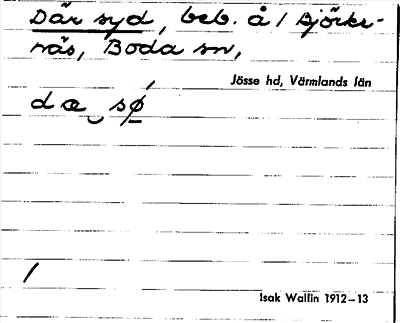 Där syd, beb. å 1 Björke-
näs, Boda sn,
Jösse hd, Värmlands län
dæ‿sø̄́
1
Isak Wallin 1912–13